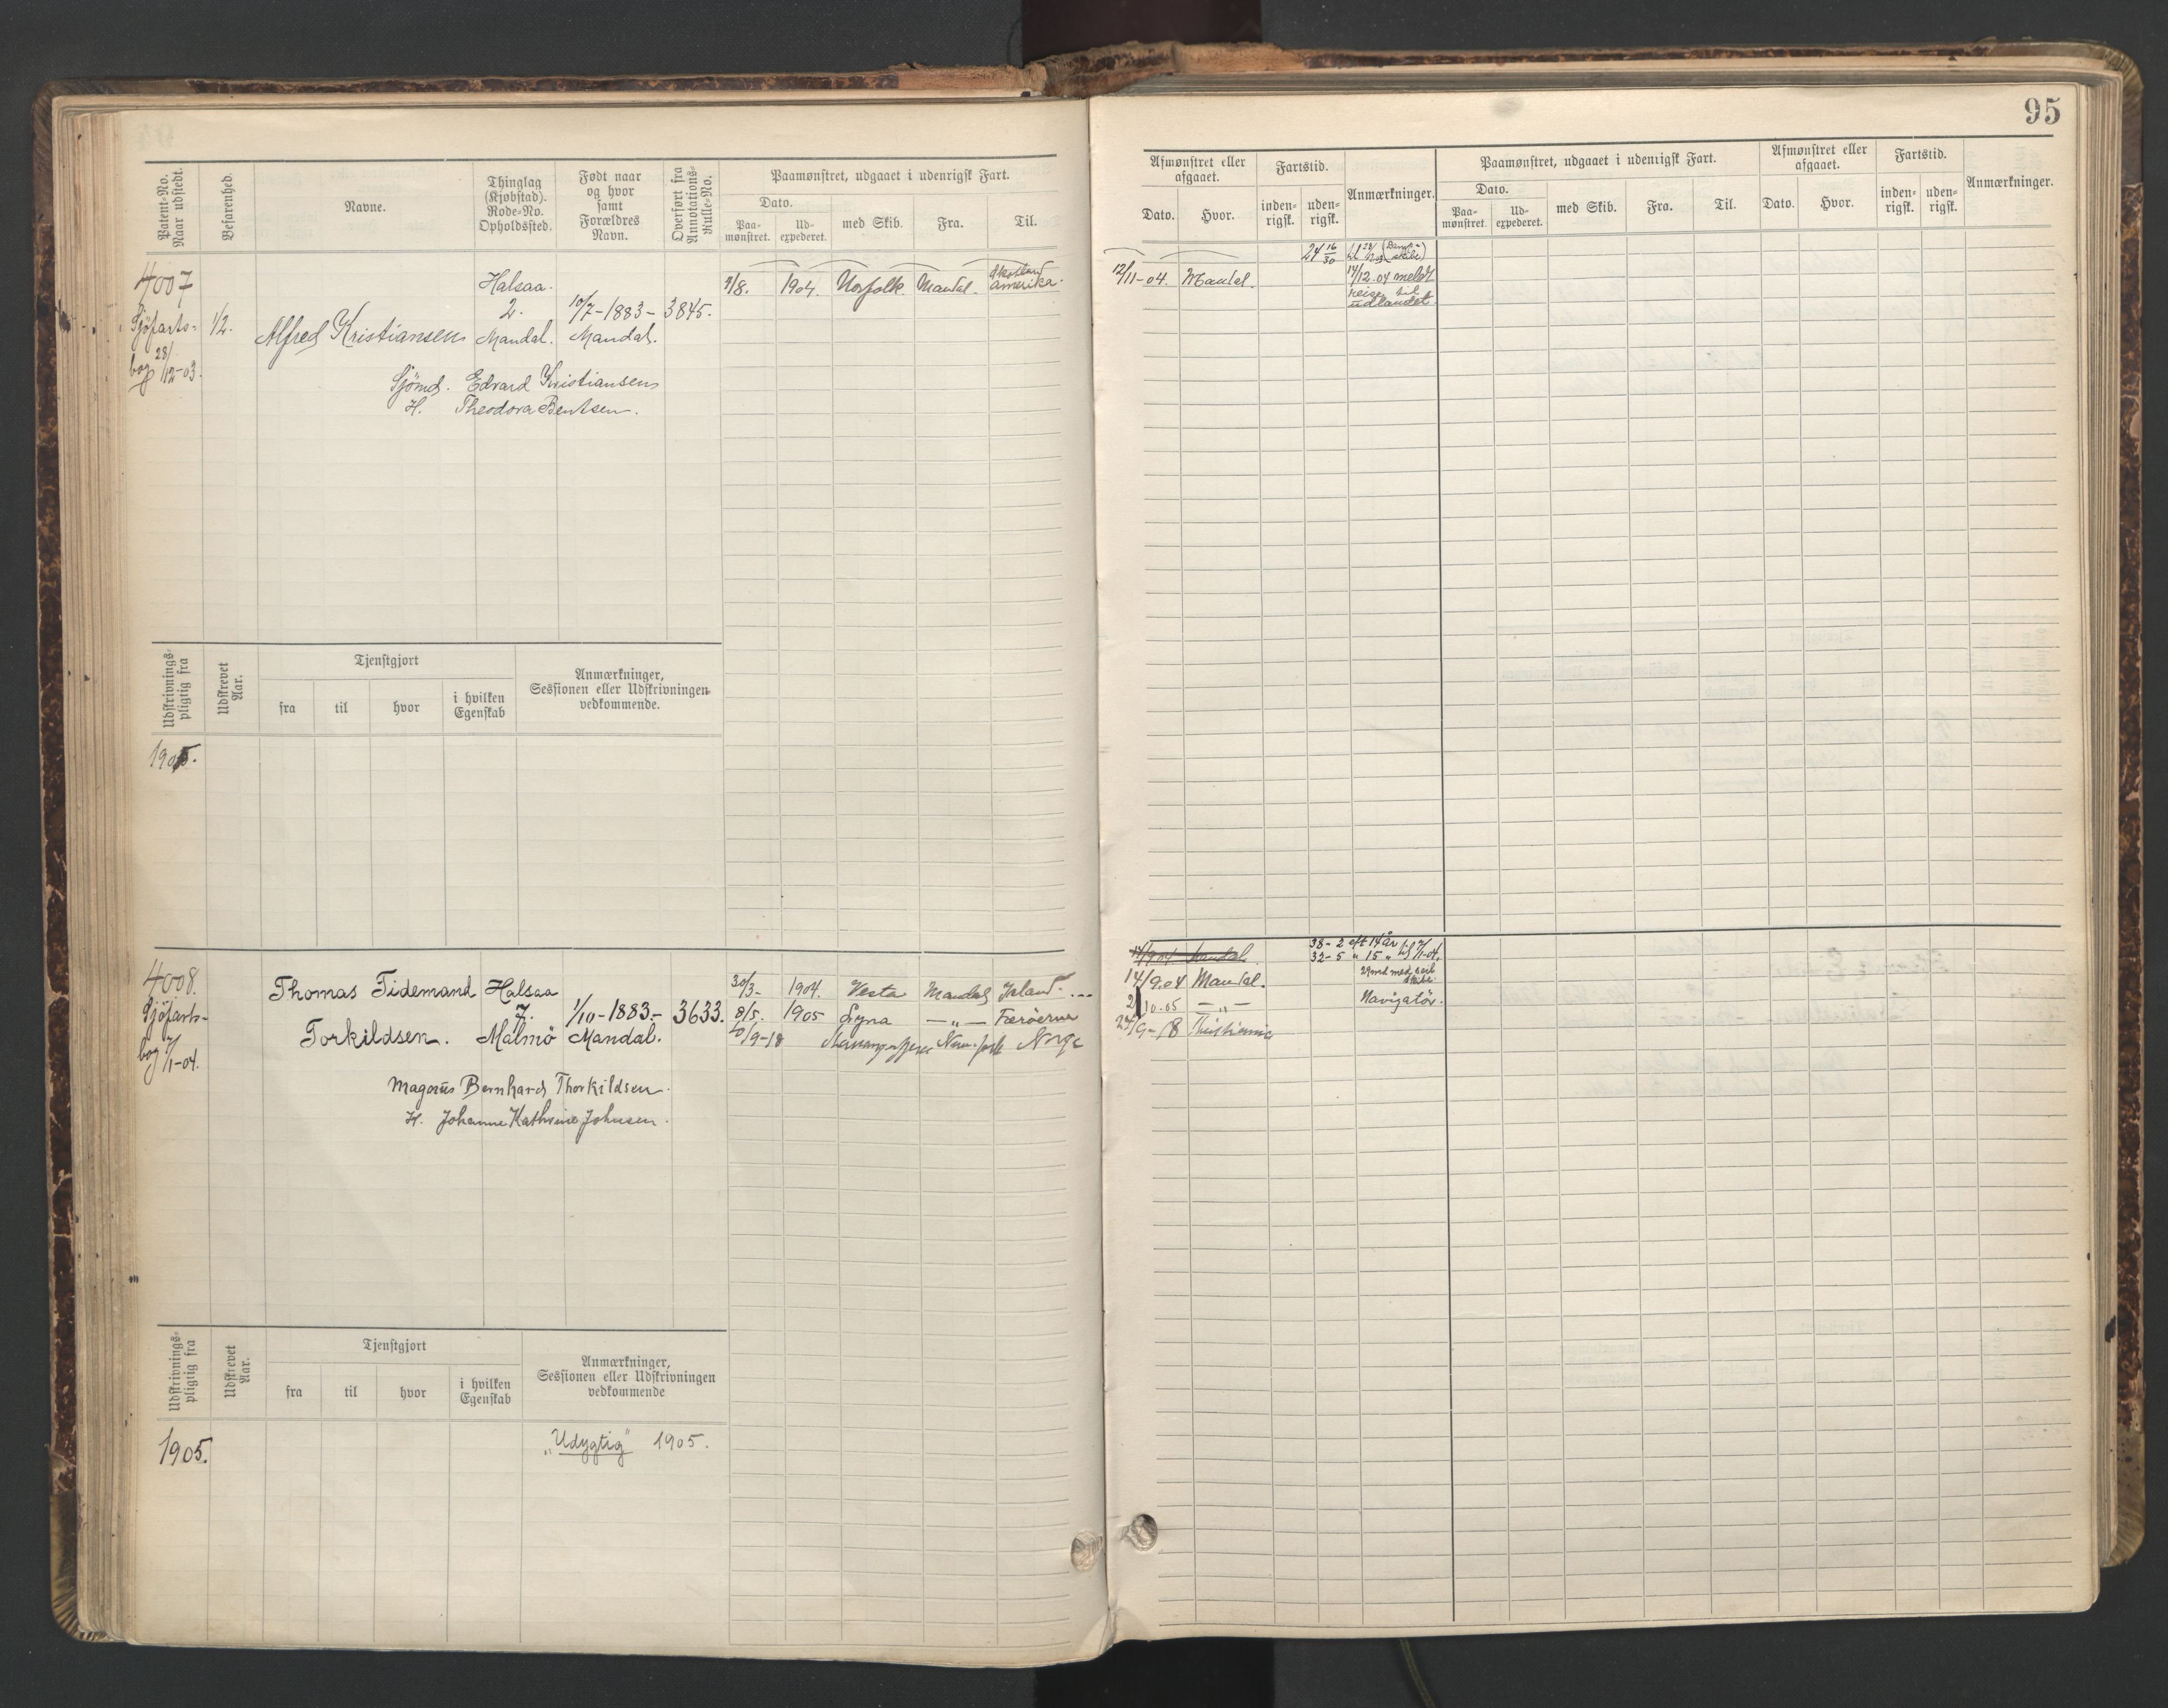 95
Patent-No. Naar udstedt.
Befarenhed.
Navne.
Thinglag (Kjøbstad). Rode-No. Opholdssted.
Født naar og hvor samt Forældres Navn.
Overført fra Annotations-Rulle-No.
Paamønstret, udgaaet i udenrigsk Fart.
Dato.
Paa-mønstret.
Ud-expederet.
med Skib.
Fra.
Til.
Afmønstret eller afgaaet.
Dato.
Hvor.
Fartstid.
inden-rigsk.
uden-rigsk.
Anmærkninger.
Paamønstret, udgaaet i udenrigsk Fart.
Dato.
Paa-mønstret.
Ud-expederet.
med Skib.
Fra.
Til.
Afmønstret eller afgaaet.
Dato.
Hvor.
Fartstid.
inden-rigsk.
uden-rigsk.
Anmærkninger.
4007
Sjöfarts-
bog 28/12-03.
1/2.
Alfred Kristiansen
Halsaa.
2.
Mandal.
10/7-1883-
Mandal.
3845.
Sjömd. Edvard Kristiansen
H. Theodora Bentsen.
9/8. 1904. Norfolk. Mandal. Skotland Amerika.
12/11-04. Mandal.
24 16/30
14/12.04 meldt
reise til
udlandet
Udskrivnings-pligtig fra
Udskrevet Aar.
Tjenstgjort
fra
til
hvor
i hvilken Egenskab
Anmærkninger, Sessionen eller Udskrivningen vedkommende.
1905.
4008.
Sjöfarts-
bog 7/1-04.
Thomas Tidemand
Torkildsen.
Halsaa
7.
Malmö
1/10-1883.-
Mandal.
3633.
Magnus Bernhard Thorkildsen.
H. Johanne Kathrine Johnsen.
30/3- 1904. Vesta Mandal Island.
8/5. 1905 Lyna -"- Færöerne
10/9-18 Stavangerfjeren New-York Norge
14/9.04 Mandal.
10.05 -"-
24/9-18 Kristiania
38-2 eft 14 år til 7/1-04.
32-5 " 15 "
29 md med seil
skibe
Navigatör.
Udskrivnings-pligtig fra
Udskrevet Aar.
Tjenstgjort
fra
til
hvor
i hvilken Egenskab
Anmærkninger, Sessionen eller Udskrivningen vedkommende
1905.
"Udygtig" 1905.